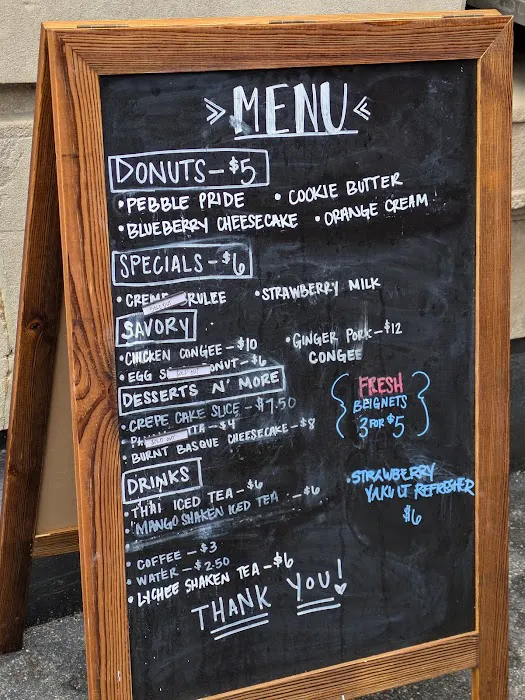 » MENU «
DONUTS - $5
• PEBBLE PRIDE • COOKIE BUTTER
• BLUEBERRY CHEESECAKE • ORANGE CREAM
SPECIALS - $6
• CREME BRULEE • STRAWBERRY MILK
SAVORY
• CHICKEN CONGEE - $10
• GINGER PORK - $12
CONGEE
• EGG ONUT - $6
DESSERTS N' MORE
• CREPE CAKE SLICE - $7.50
TTA - $4
• BURNT BASQUE CHEESECAKE - $8
FRESH
BEIGNETS
3 FOR $5
DRINKS
• THAI ICED TEA - $6
• MANGO SHAKEN ICED TEA - $6
• STRAWBERRY
YAKULT REFRESHER
$6
• COFFEE - $3
• WATER - $2.50
• LYCHEE SHAKEN TEA - $6
THANK YOU!